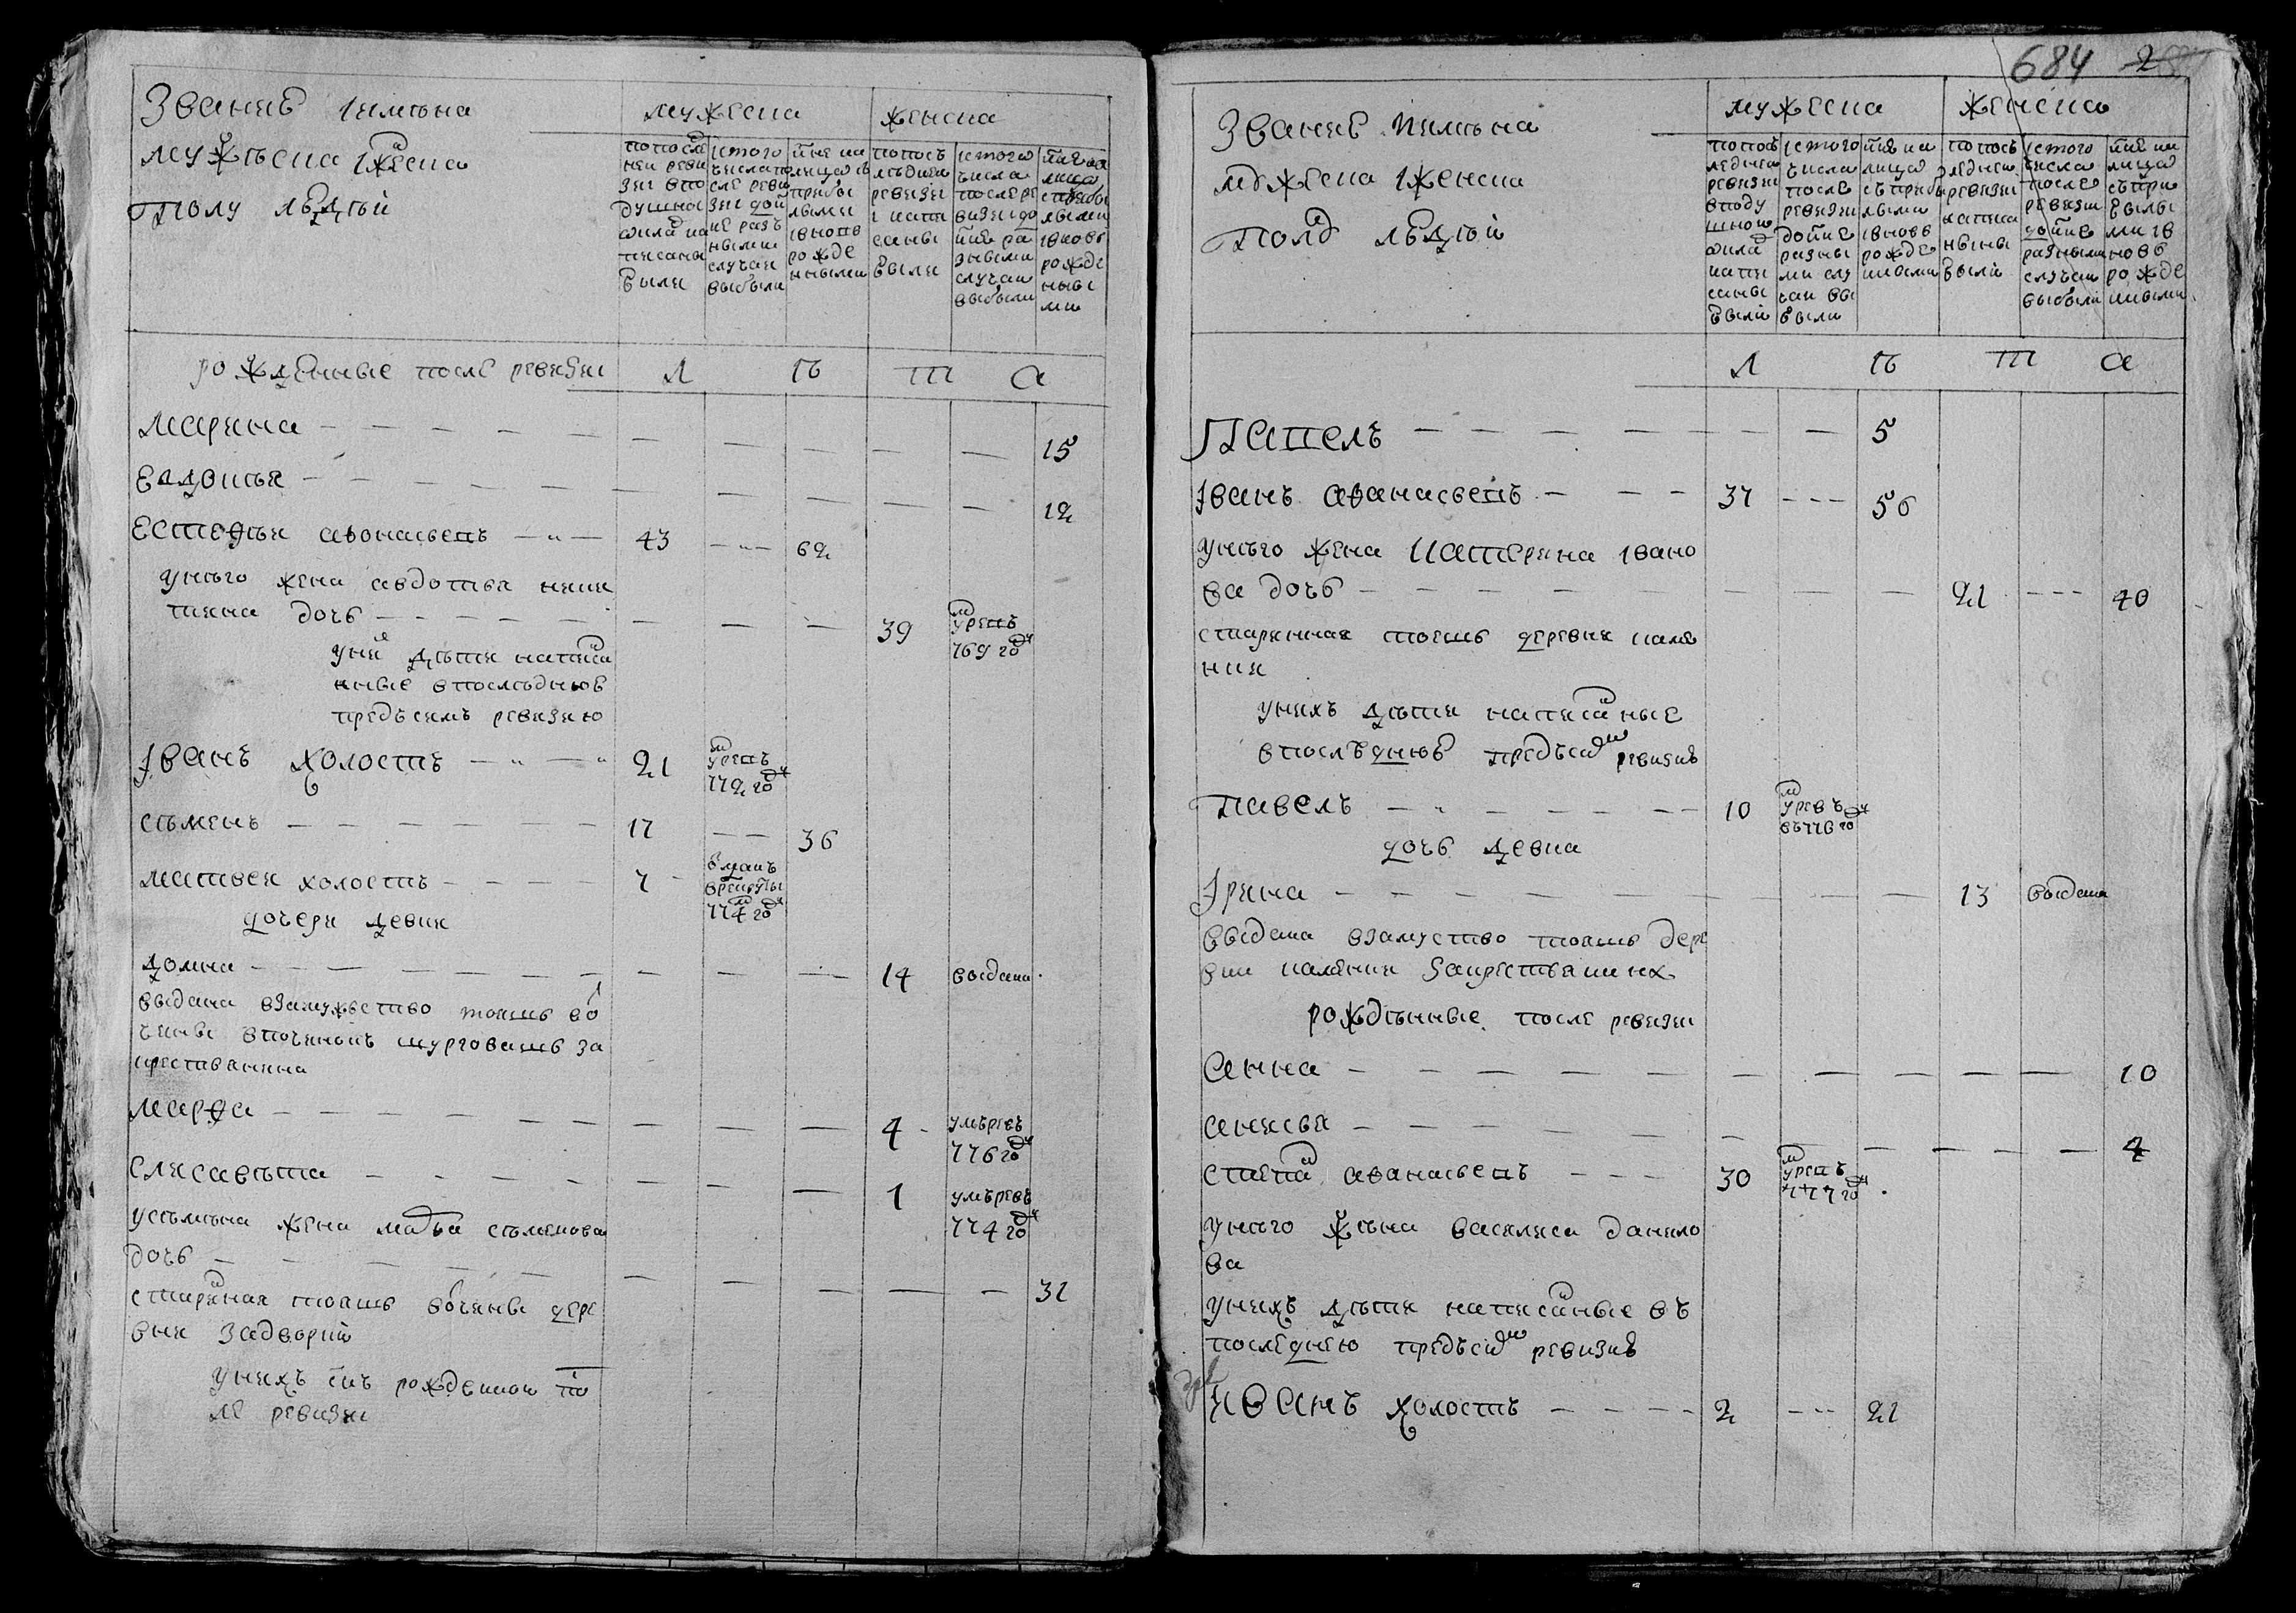 Звание имѣна
мужъска женска
полу людей
мужеска
женска
по послѣ
ней реви
зи в по
душна
окладъ на
писаны
были
ис того
числа по
сле реви
зи до н
не разъ
ными
случаи
выбыли
ннѣ на
лицо с
прибы
лыми
и вновь
рожде
нными
по посъ
лѣдней
ревизи
напи
саны
были
ис того
числа
после ре
визи до
ннѣ ра
зными
случаи
выбыли
ннѣ на
лицо
с прибы
лыми
и вновь
рожде
ными
рожденные после ревизи
Л ѣ т а
Марина 15
Евдокья 12
Естефѣи Афонасьевъ 43 62
У него жена Авдотья Ники
тина дочь 39 умревъ 769 году
У ни дѣти написа
нные в последнюю
предъ симъ ревизию
Іванъ холостъ 21 умревъ 772 году
Семенъ 17 36
Матвеи холостъ 7 отданъ в рекруты 774 году
дочери девки
Домна 14 выдана
выдана в замужьство тоаже во
чины в починокъ Шурговашъ за
крестьянина
Марфа 4 умъревъ 776 году
Елисавѣта 1 умъревъ 774 году
У Семѣна жена Мавра Семенова
дочь
31
старинная тоашъ вочины дере
вни Задворий
У нихъ снъ рожденнои по
ле ревизи
684
Звание имѣна
мужеска и женска
полу людей
мужеска
женска
по посъ
ледней
ревизи
в поду
шномъ
окладъ
напи
саны
были
ис того
числа
после
ревизи
до ннѣ
разны
ми слу
чаи вы
были
ннѣ на
лицо
съ прибы
лыми
и вновь
рожде
нными
по посъ
ледней
ревизи
написа
нны
были
ис того
числа
после
ревизи
до ннѣ
разными
случаи
выбыли
ннѣ на
лицо
съ при
былы
ми и в
новь
рожде
нными
Л ѣ т а
Павелъ 5
Іванъ Афанасьевъ 37 56
У него жена Катерина Івано
ва дочь 21 40
старинная тоашъ деревни Каме
нки
У нихъ дѣти написанные
в последнюю предъ сим ревизию
Павелъ 10 умревъ въ 776 году
дочь девка
Ірина 13 выдана
выдана в замуство тоашъ дере
вни Каменки за крестьянинх
рождѣнные после ревизи
Анна 10
Анисья 4
Степан Афанасьевъ 30 умревъ 777 году
У него жѣна Василиса Данило
ва
У нихъ дѣти написанные въ
последнею предъ сим ревизию
Иванъ холостъ 2 21